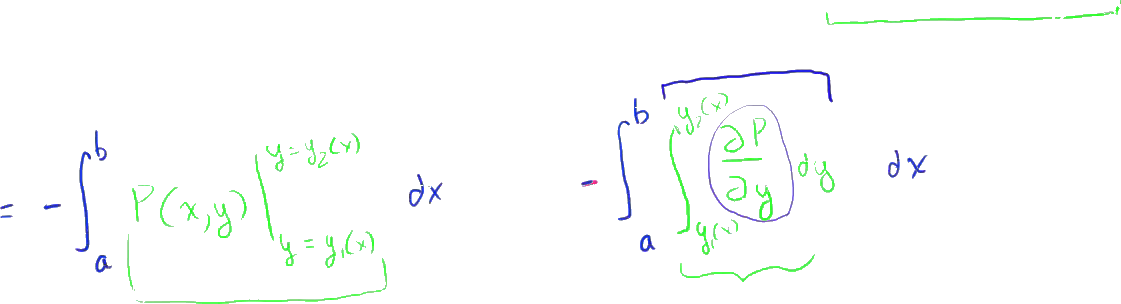 = - ∫_a^b P(x,y) |_{y = y_1(x)}^{y = y_2(x)} dx
- ∫_a^b ∫_{y_1(x)}^{y_2(x)} ∂P/∂y dy dx